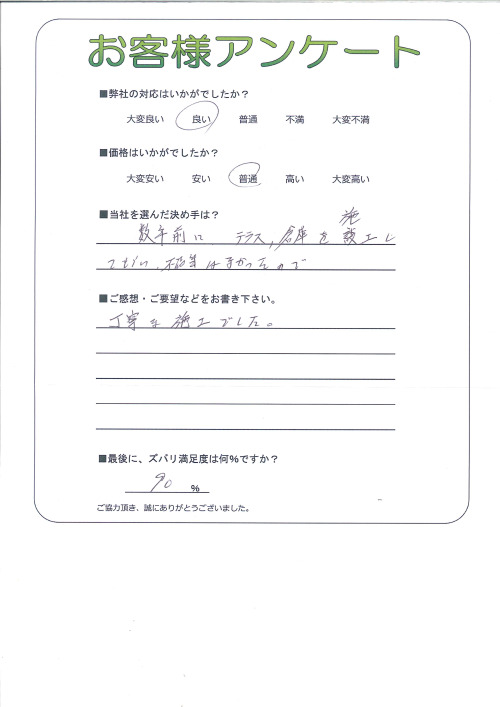 お客様アンケート
■弊社の対応はいかがでしたか？
大変良い 良い 普通 不満 大変不満
■価格はいかがでしたか？
大変安い 安い 普通 高い 大変高い
■当社を選んだ決め手は？
施
数年前に テラス，倉庫を 設工し
てもらい、不都合はなかったので
■ご感想・ご要望などをお書き下さい。
丁寧な施工でした。
■最後に、ズバリ満足度は何%ですか？
90 %
ご協力頂き、誠にありがとうございました。